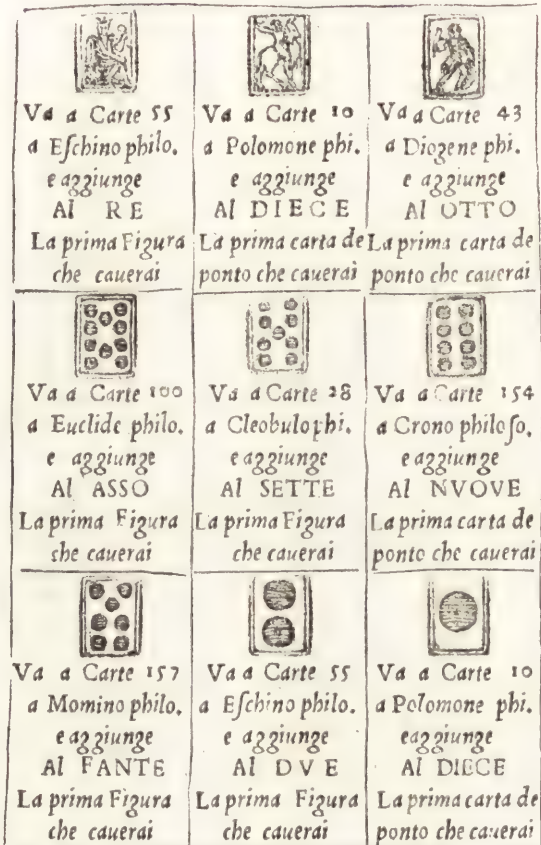 Va a Carte 55
a Eſchino philo.
e aggiunge
Al RE
La prima Figura
che cauerai
Va a Carte 10
a Polomone phi.
e aggiunge
Al DIECE
La prima carta de
ponto che cauerai
Va a Carte 43
a Diogene phi.
e aggiunge
Al OTTO
La prima carta de
ponto che cauerai
Va a Carte 100
a Euclide philo.
e aggiunge
Al ASSO
La prima Figura
che cauerai
Va a Carte 28
a Cleobulo phi.
e aggiunge
Al SETTE
La prima Figura
che cauerai
Va a Carte 154
a Crono philoſo.
e aggiunge
Al NVOVE
La prima carta de
ponto che cauerai
Va a Carte 157
a Momino philo.
e aggiunge
Al FANTE
La prima Figura
che cauerai
Va a Carte 55
a Eſchino philo.
e aggiunge
Al DVE
La prima Figura
che cauerai
Va a Carte 10
a Polomone phi.
e aggiunge
Al DIECE
La prima carta de
ponto che cauerai